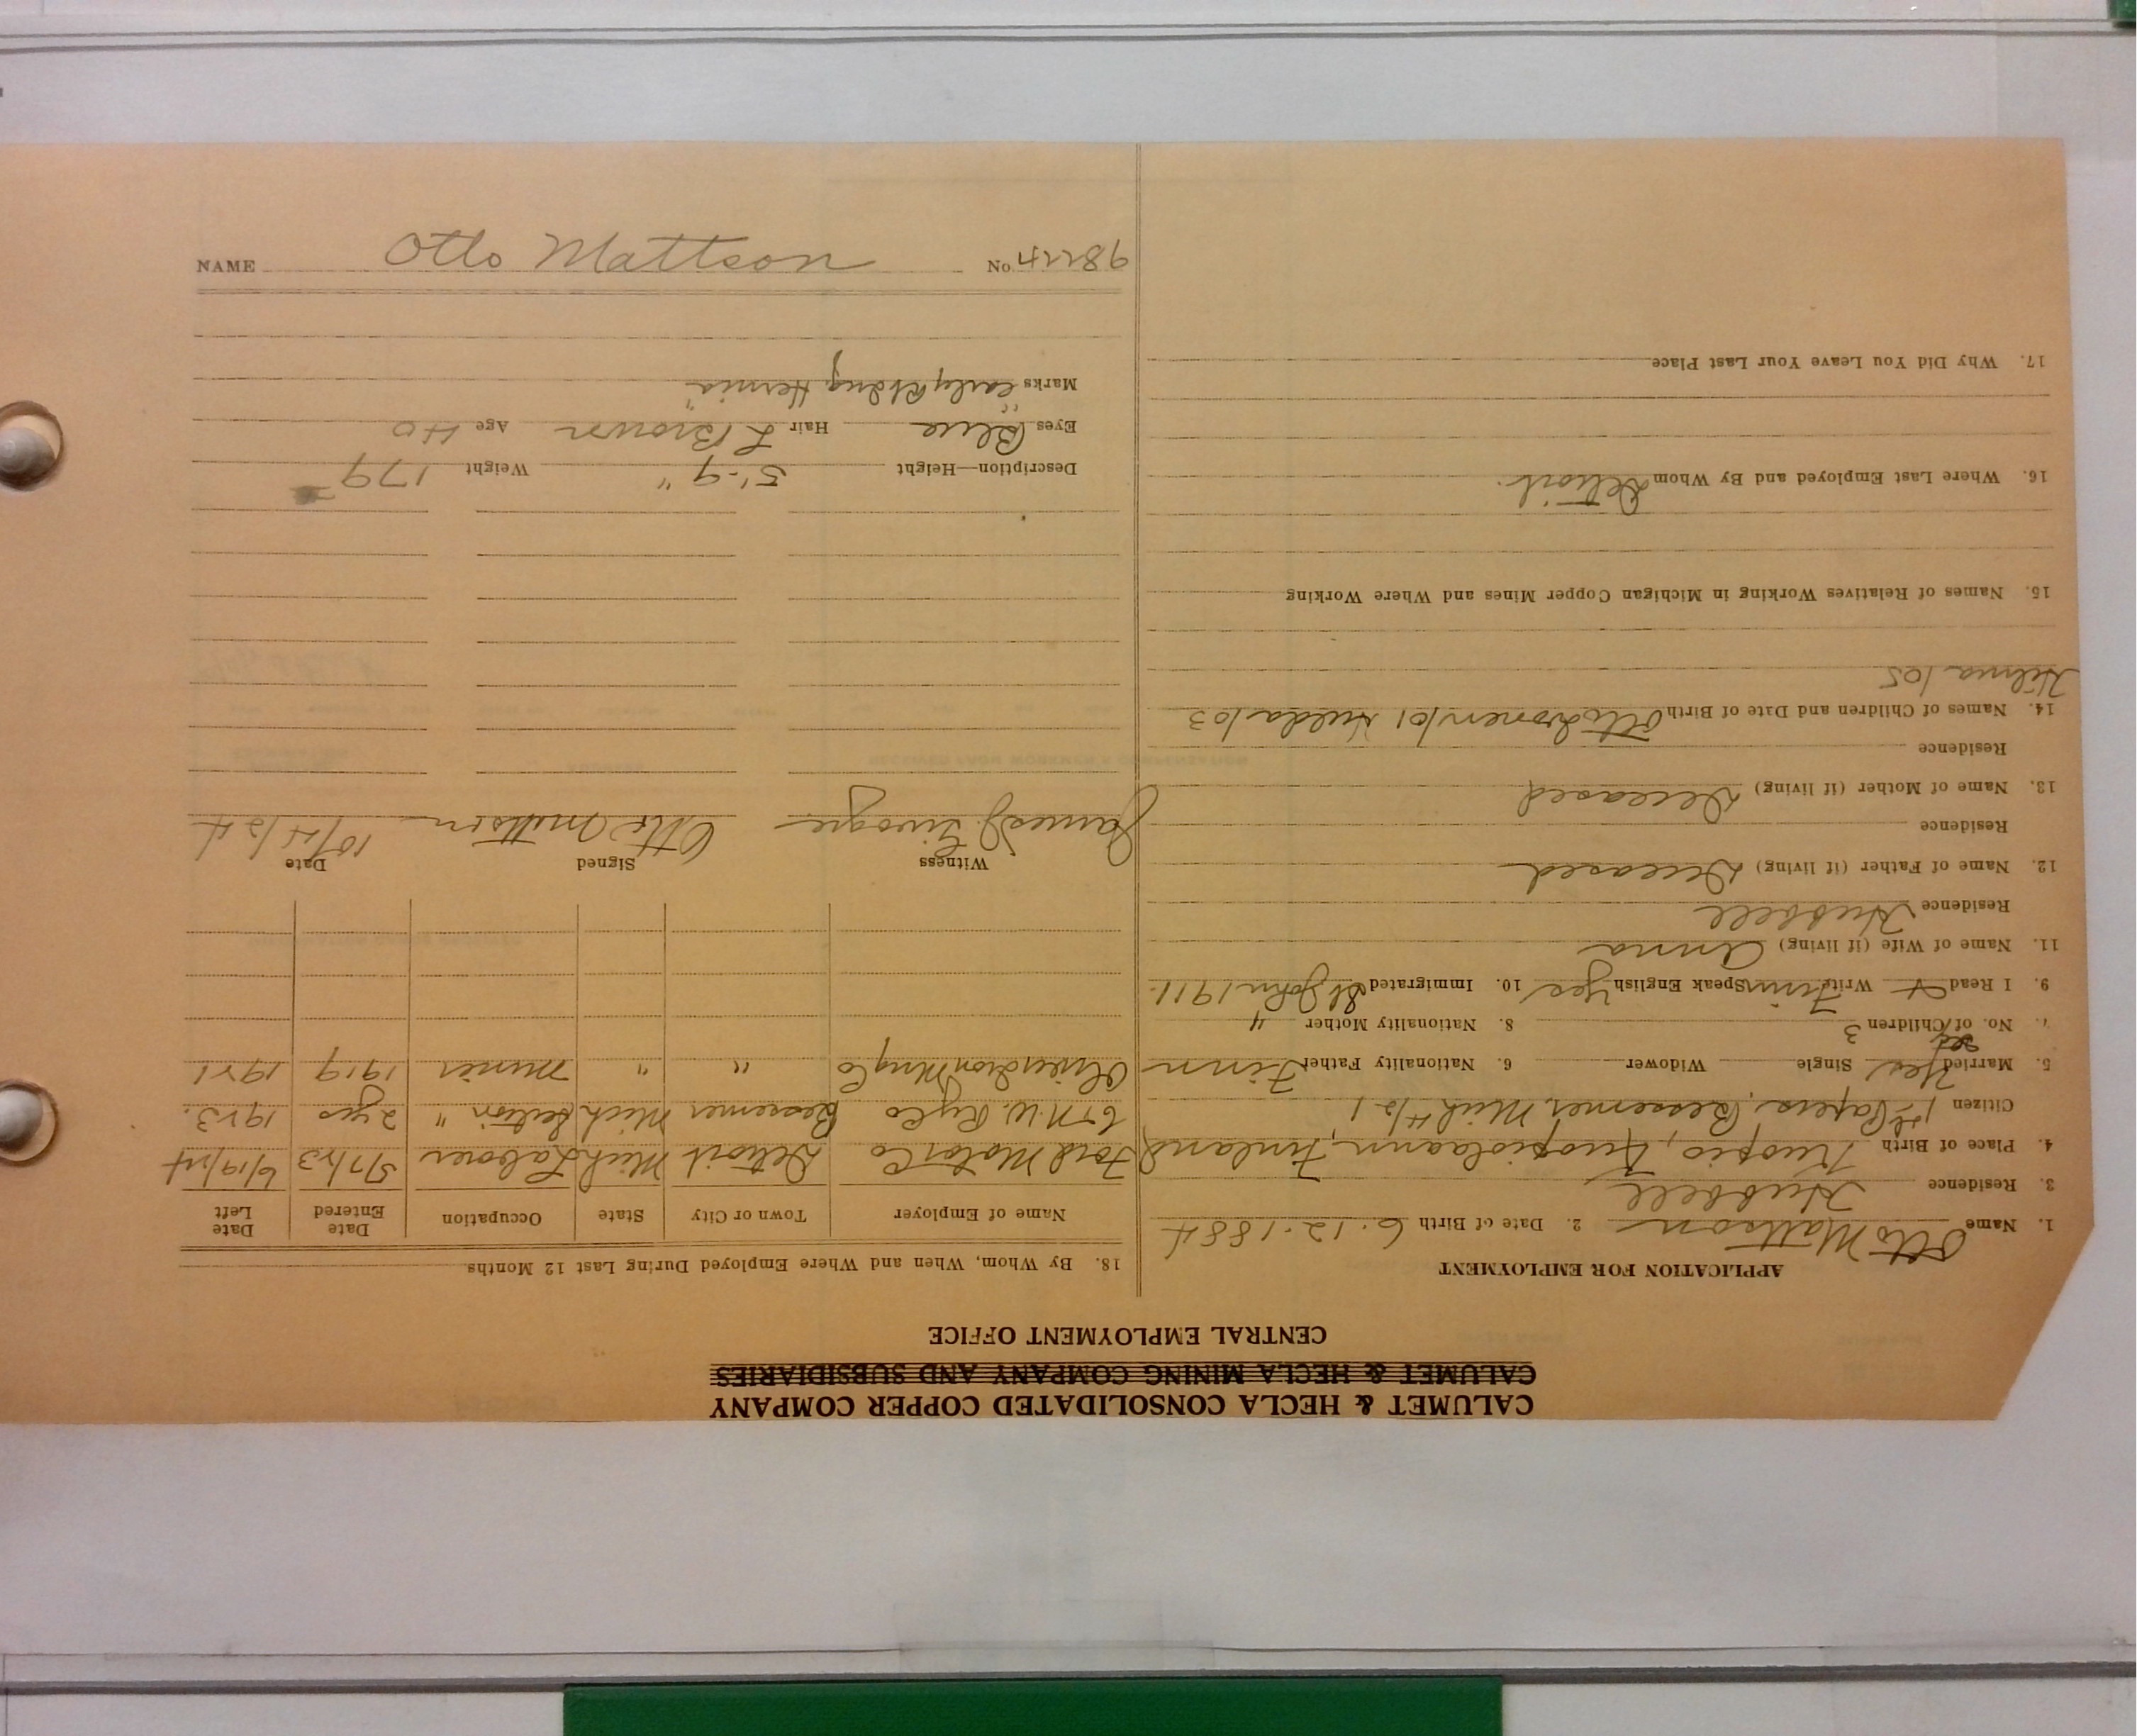 CALUMET & HECLA CONSOLIDATED COPPER COMPANY
CALUMET & HECLA MINING COMPANY AND SUBSIDIARIES
CENTRAL EMPLOYMENT OFFICE
APPLICATION FOR EMPLOYMENT
1. Name Otto Mattson 2. Date of Birth 6-12-1884
3. Residence Hubbell
4. Place of Birth Kuopio, Kuopiolaann, Finland
Citizen 1st Papers Bessemer, Mich 4/21
5. Married Yes Single Widower 6. Nationality Father Finn
7. No. of Children 3 8. Nationality Mother "
9. I Read & Write Finn Speak English Yes 10. Immigrated St John 1911
11. Name of Wife (if living) Anna
Residence Hubbell
12. Name of Father (if living) Deceased
Residence
13. Name of Mother (if living) Deceased
Residence
14. Names of Children and Date of Birth Otto /01 Hulda /03
Hilma /05
15. Names of Relatives Working in Michigan Copper Mines and Where Working
16. Where Last Employed and By Whom Detroit.
17. Why Did You Leave Your Last Place
18. By Whom, When and Where Employed During Last 12 Months
Name of Employer Town or City State Occupation Date Entered Date Left
Ford Motor Co Detroit Mich Laborer 5/7/23 6/19/24
C & N.W. Ry Co Bessemer Mich Section " 2 yrs 1923.
Mng Co " " Miner 1919 1921
Witness Signed Date
James J. Otto Mattson 10/4/24
Description—Height 5'-9" Weight 179
Eyes Blue Hair L Brown Age 40
Marks "early Hernia"
NAME Otto Mattson No 98224